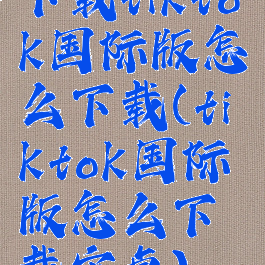 下载tikto
k国际版怎
么下载(ti
ktok国际
版怎么下
载安卓)